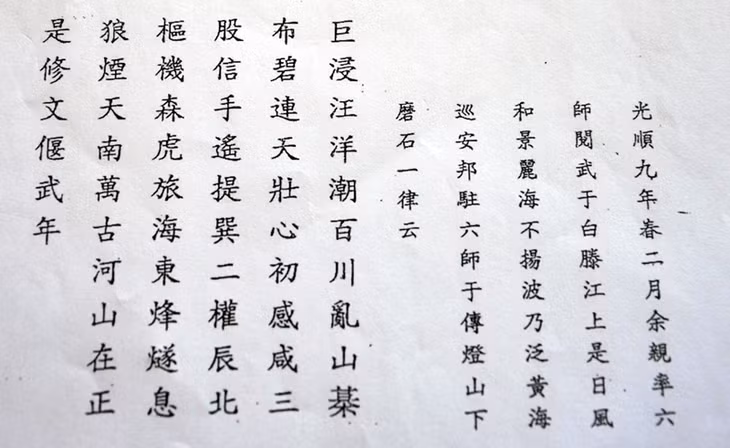 光順九年春二月余親率六
師閱武于白滕江上是日風
和景麗海不揚波乃泛黃海
巡安邦駐六師于傳燈山下
磨石一律云
巨浸汪洋潮百川亂山棊
布碧連天壯心初感咸三
股信手遙提巽二權辰北
樞機森虎旅海東烽燧息
狼煙天南萬古河山在正
是修文偃武年